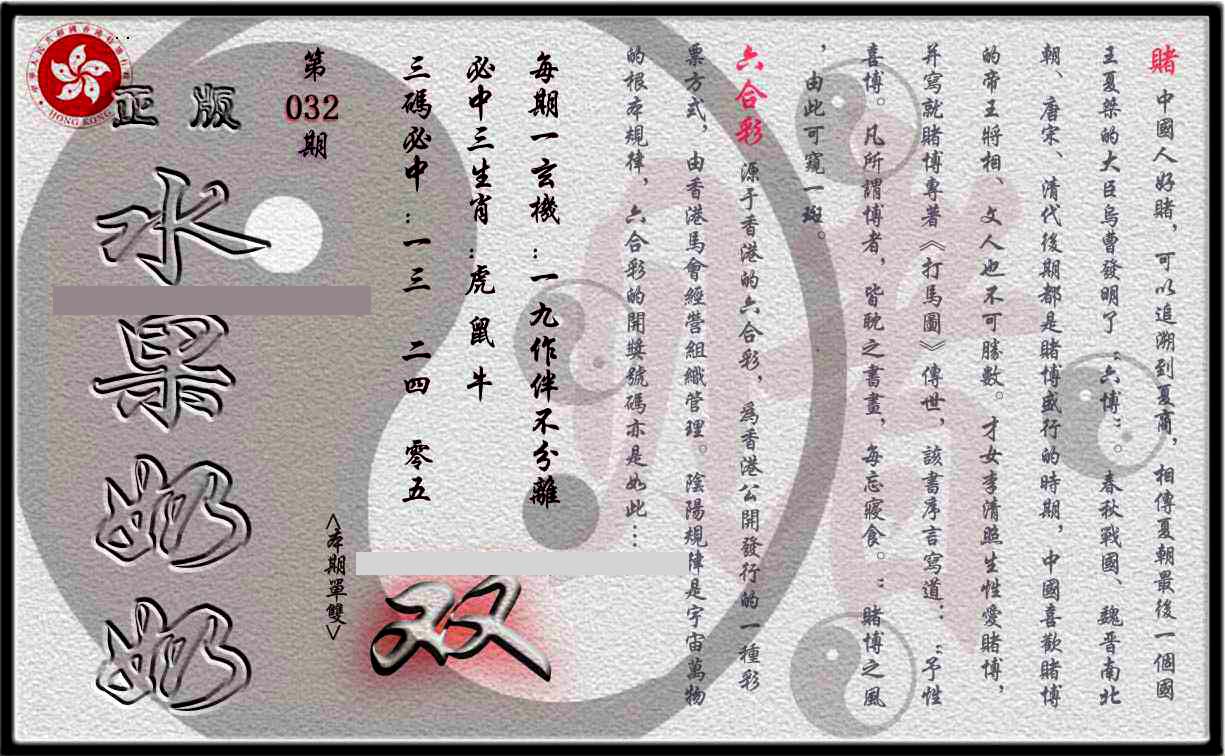 賭 中國人好賭，可以追溯到夏商，相傳夏朝最後一個國
王夏桀的大臣烏曹發明了“六博”　春秋戰國、魏晋南北
朝、唐宋、清代後期都是賭博盛行的時期，中國喜歡賭博
的帝王將相、文人也不可勝數。才女李清照生性愛賭博，
并寫就賭博專著《打馬圖》傳世，該書序言寫道：“予性
喜博。凡所謂博者，皆耽之書畫，每忘寢食。”賭博之風
，由此可窺一斑。
六合彩 源于香港的六合彩，為香港公開發行的一種彩
票方式，由香港馬會經營組織管理。陰陽規律是宇宙萬物
的根本規律，六合彩的開獎號碼亦是如此…
每期一玄機：一九作伴不分離
必中三生肖：虎 鼠 牛
三碼必中：一三 二四 零五
第
032
期
<本期單雙>
双
正版
水
果
奶
奶
HONG KONG